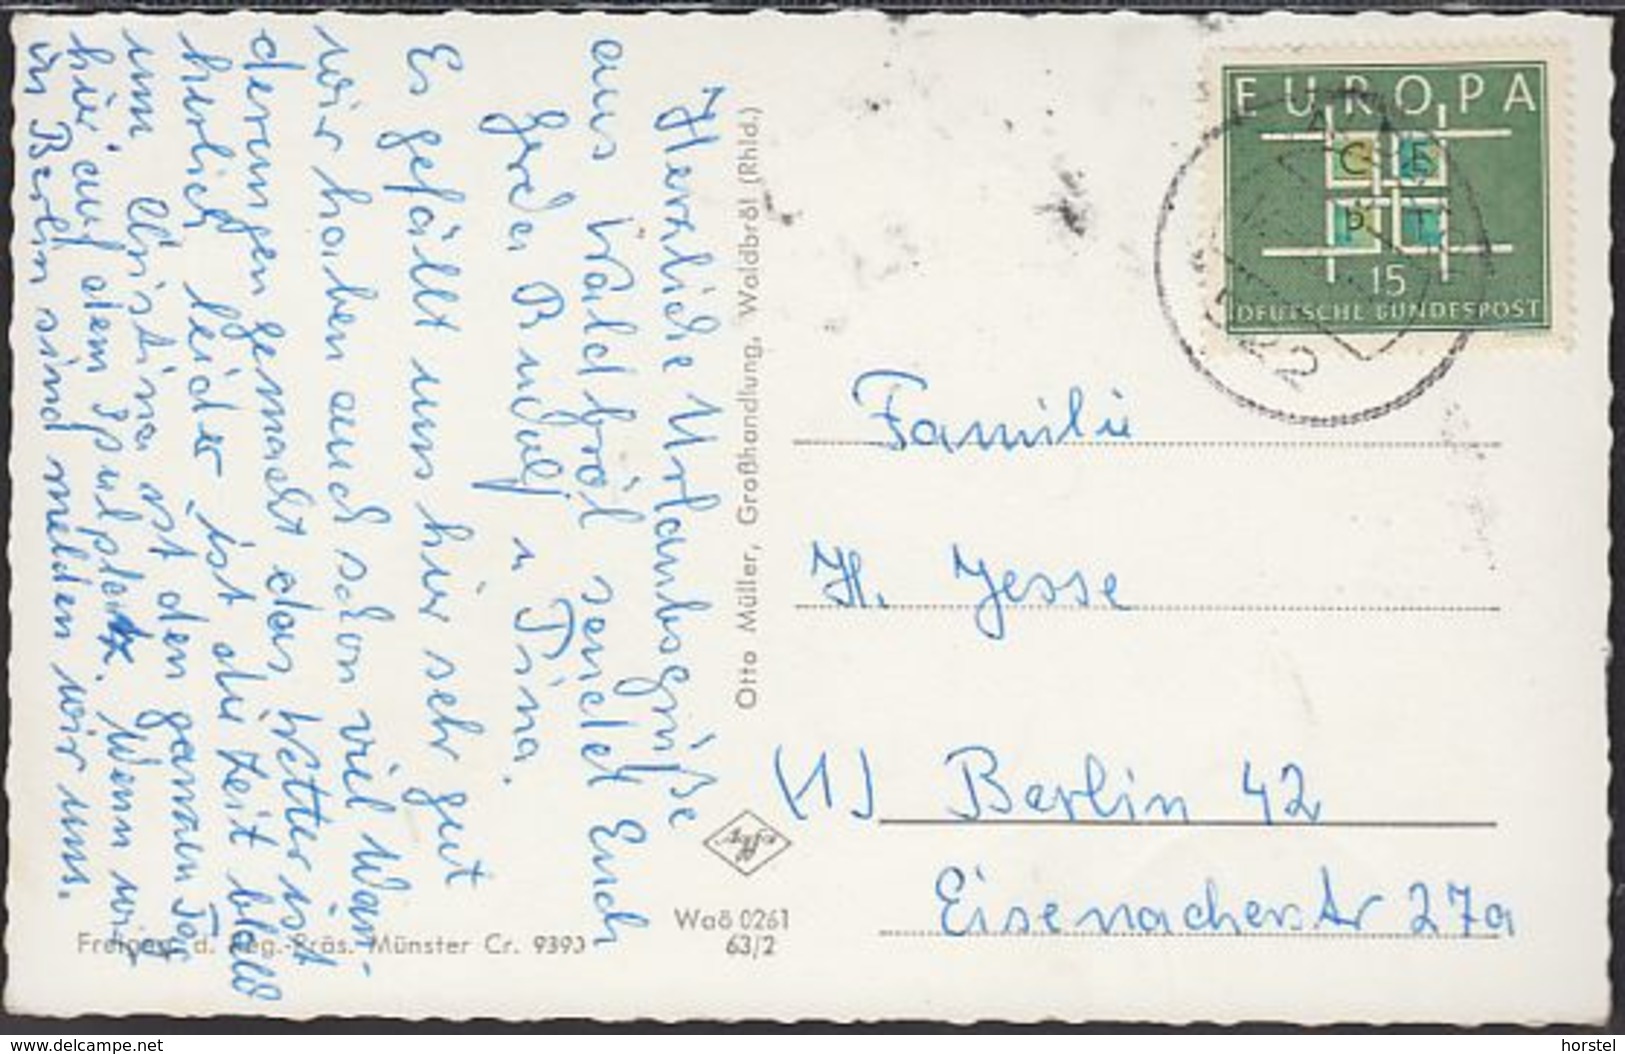 Herzliche Urlaubsgrüße
aus Waldbröl sendet Euch
Gerda Rudolf u Tina.
Es gefällt uns hier sehr gut
wir haben auch schon viel Wan-
derungen gemacht das Wetter ist
herlich leider ist die Zeit bald
um Christina ist den ganzen Tag
hier auf dem Spielplatz. Wenn wir
in Berlin sind melden wir uns.
Otto Müller, Großhandlung, Waldbröl (Rhld.)
EUROPA
C E
P T
15
DEUTSCHE BUNDESPOST
22
Familie
H. Jesse
(1) Berlin 42
Eisenacherstr 27a
Agfa
Waö 0261
63/2
Freigeg. d. Reg.-Präs. Münster Cr. 9393
www.delcampe.net
horstel